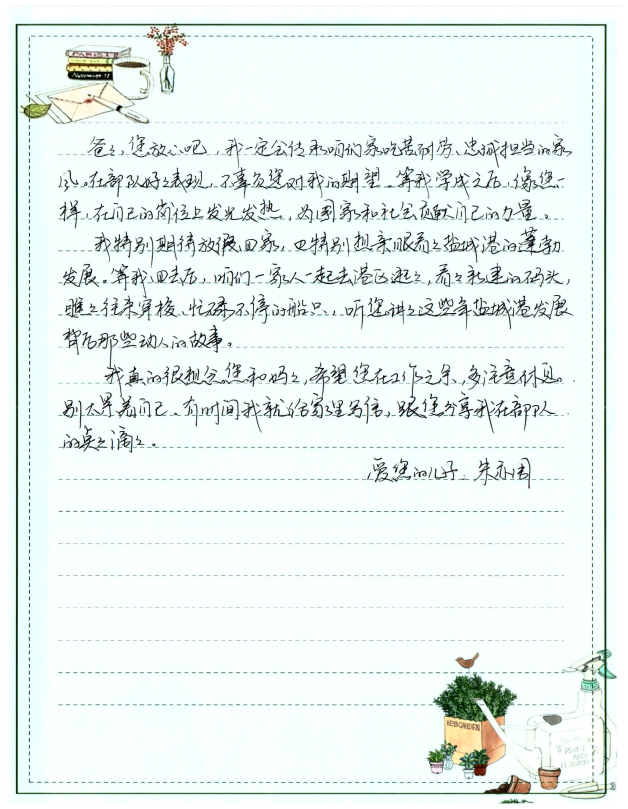 PARIS
November 11
爸々，您放心吧，我一定会传承咱们家吃苦耐劳、忠诚担当的家
风。在部队好々表现，不辜负您对我的期望。等我学成之后，像您一
样，在自己的岗位上发光发热，为国家和社会贡献自己的力量。
我特别期待放假回家，也特别想亲眼看々盐城港的蓬勃
发展。等我回去后，咱们一家人一起去港区逛々，看々新建的码头，
瞧々往来穿梭、忙碌不停的船只，听您讲々这些年盐城港发展
背后那些动人的故事。
我真的很想念您和妈々，希望您在工作之余，多注意休息。
别太累着自己。有时间我就给家里写信，跟您分享我在部队
的点々滴々。
爱您的儿子
HERB GARDEN